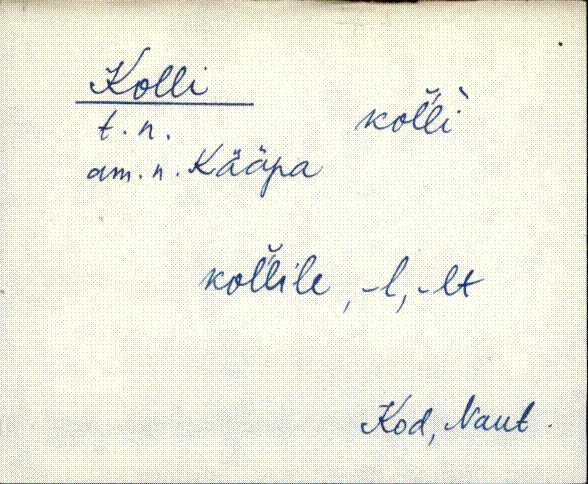 Kolli
t. n.
kol̆l̀i
am. n. Kääpa
kol̆lile, -l, -lt
Kod, Naut.